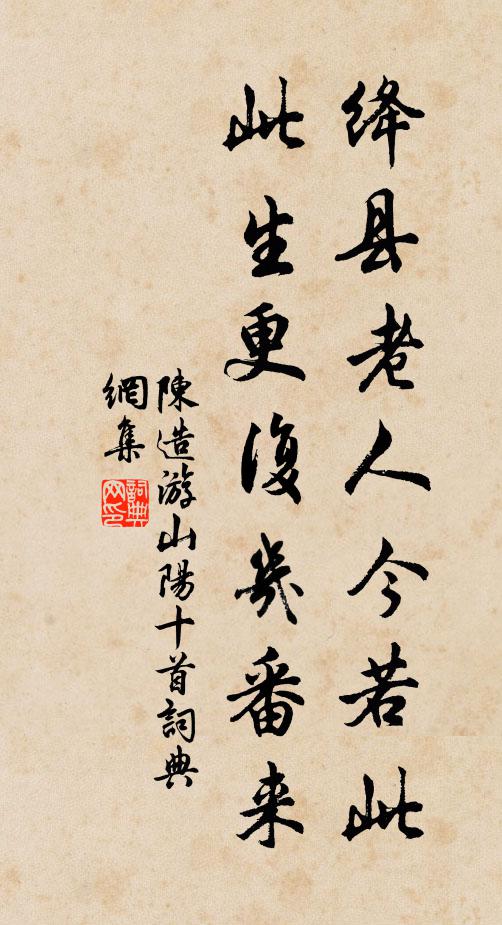 绛县老人今若此
此生更復幾番来
陳造游山陽十首詞典
網集
詞典
网印